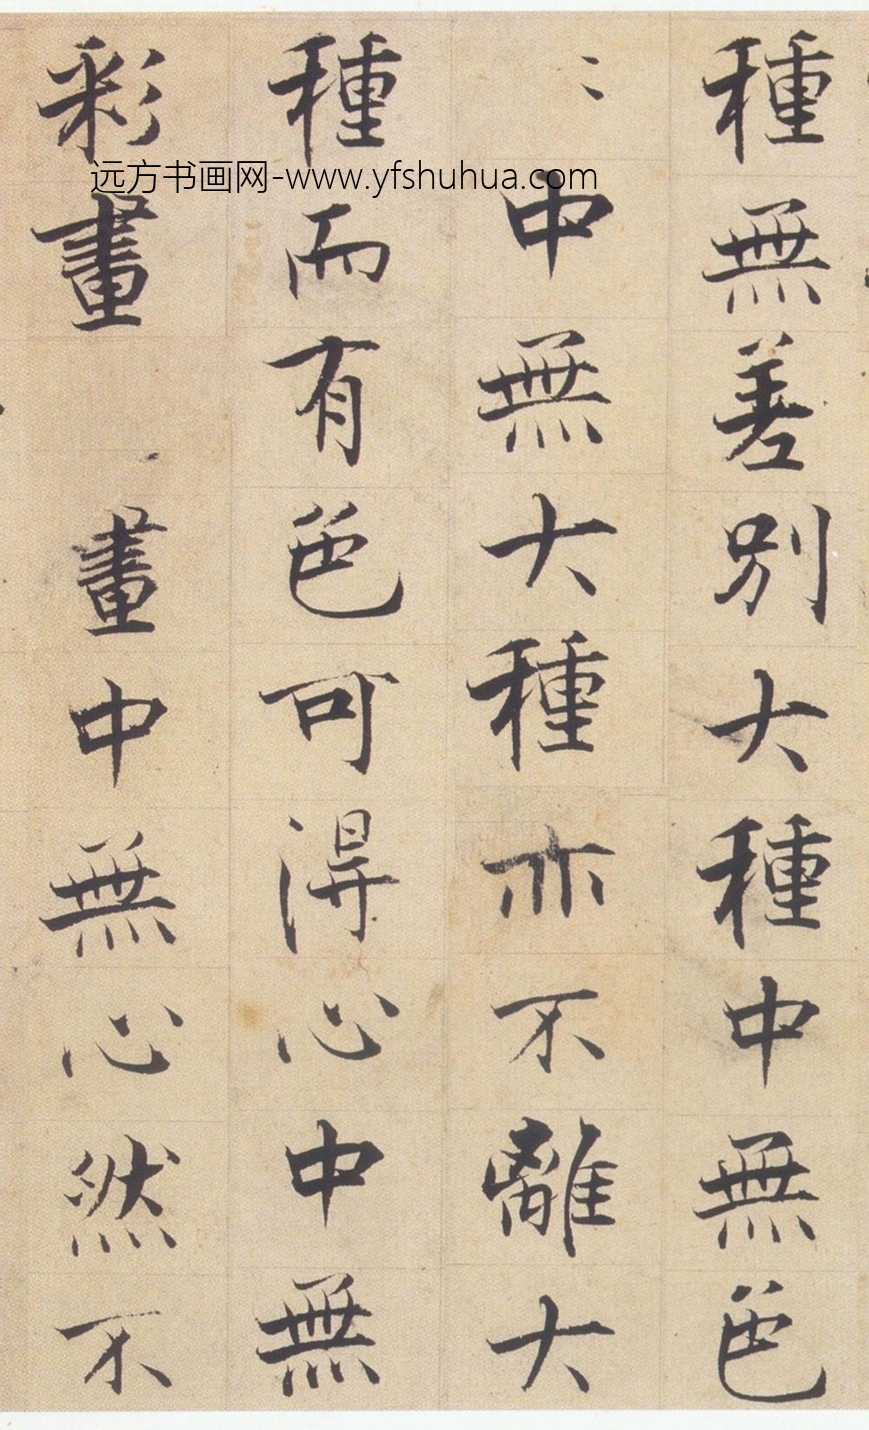 種無差別大種中無色
〻中無大種亦不離大
種而有色可得心中無
彩畫畫中無心然不
远方书画网-www.yfshuhua.com